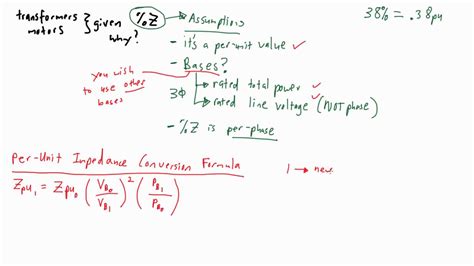 transformers
motors } given %Z → Assumptions 38% = .38pu
why?
- it's a per-unit value ✓
- Bases?
you wish
to use other
bases
3Φ → rated total power ✓
→ rated line voltage (NOT phase) ✓
- %Z is per-phase
Per-Unit Impedance Conversion Formula
1 → new
Zpu₁ = Zpu₀ (V_B₀ / V_B₁)² (P_B₁ / P_B₀)